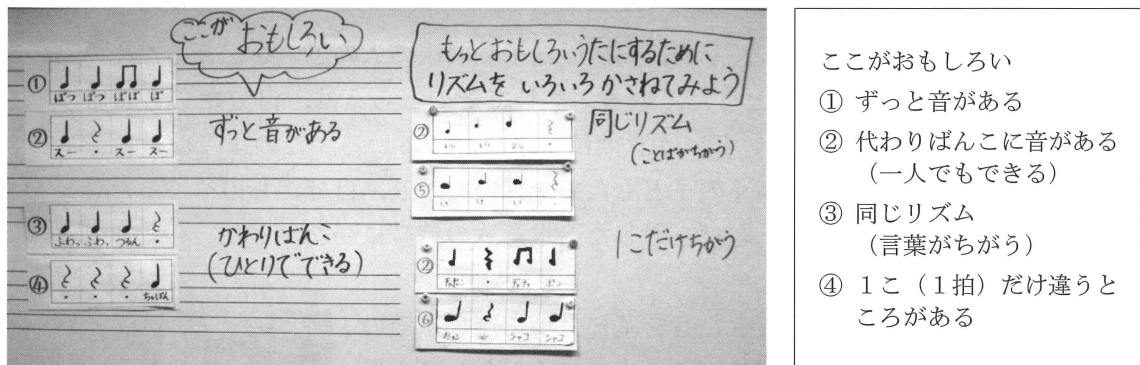 ここが おもしろい
① ぱっ ぱっ ぱぱ ぱ
② スー ・ スー スー
ずっと音がある
③ ふわっ ふわっ つるん ・
④ ・ ・ ・ ちゃぽん
かわりばんこ
(ひとりでできる)
もっとおもしろいうたにするために
リズムを いろいろ かさねてみよう
②
同じリズム
(ことばがちがう)
⑤
②
1こだけちがう
⑥
ここがおもしろい
① ずっと音がある
② 代わりばんこに音がある
(一人でもできる)
③ 同じリズム
(言葉がちがう)
④ 1こ(1拍)だけ違うと
ころがある